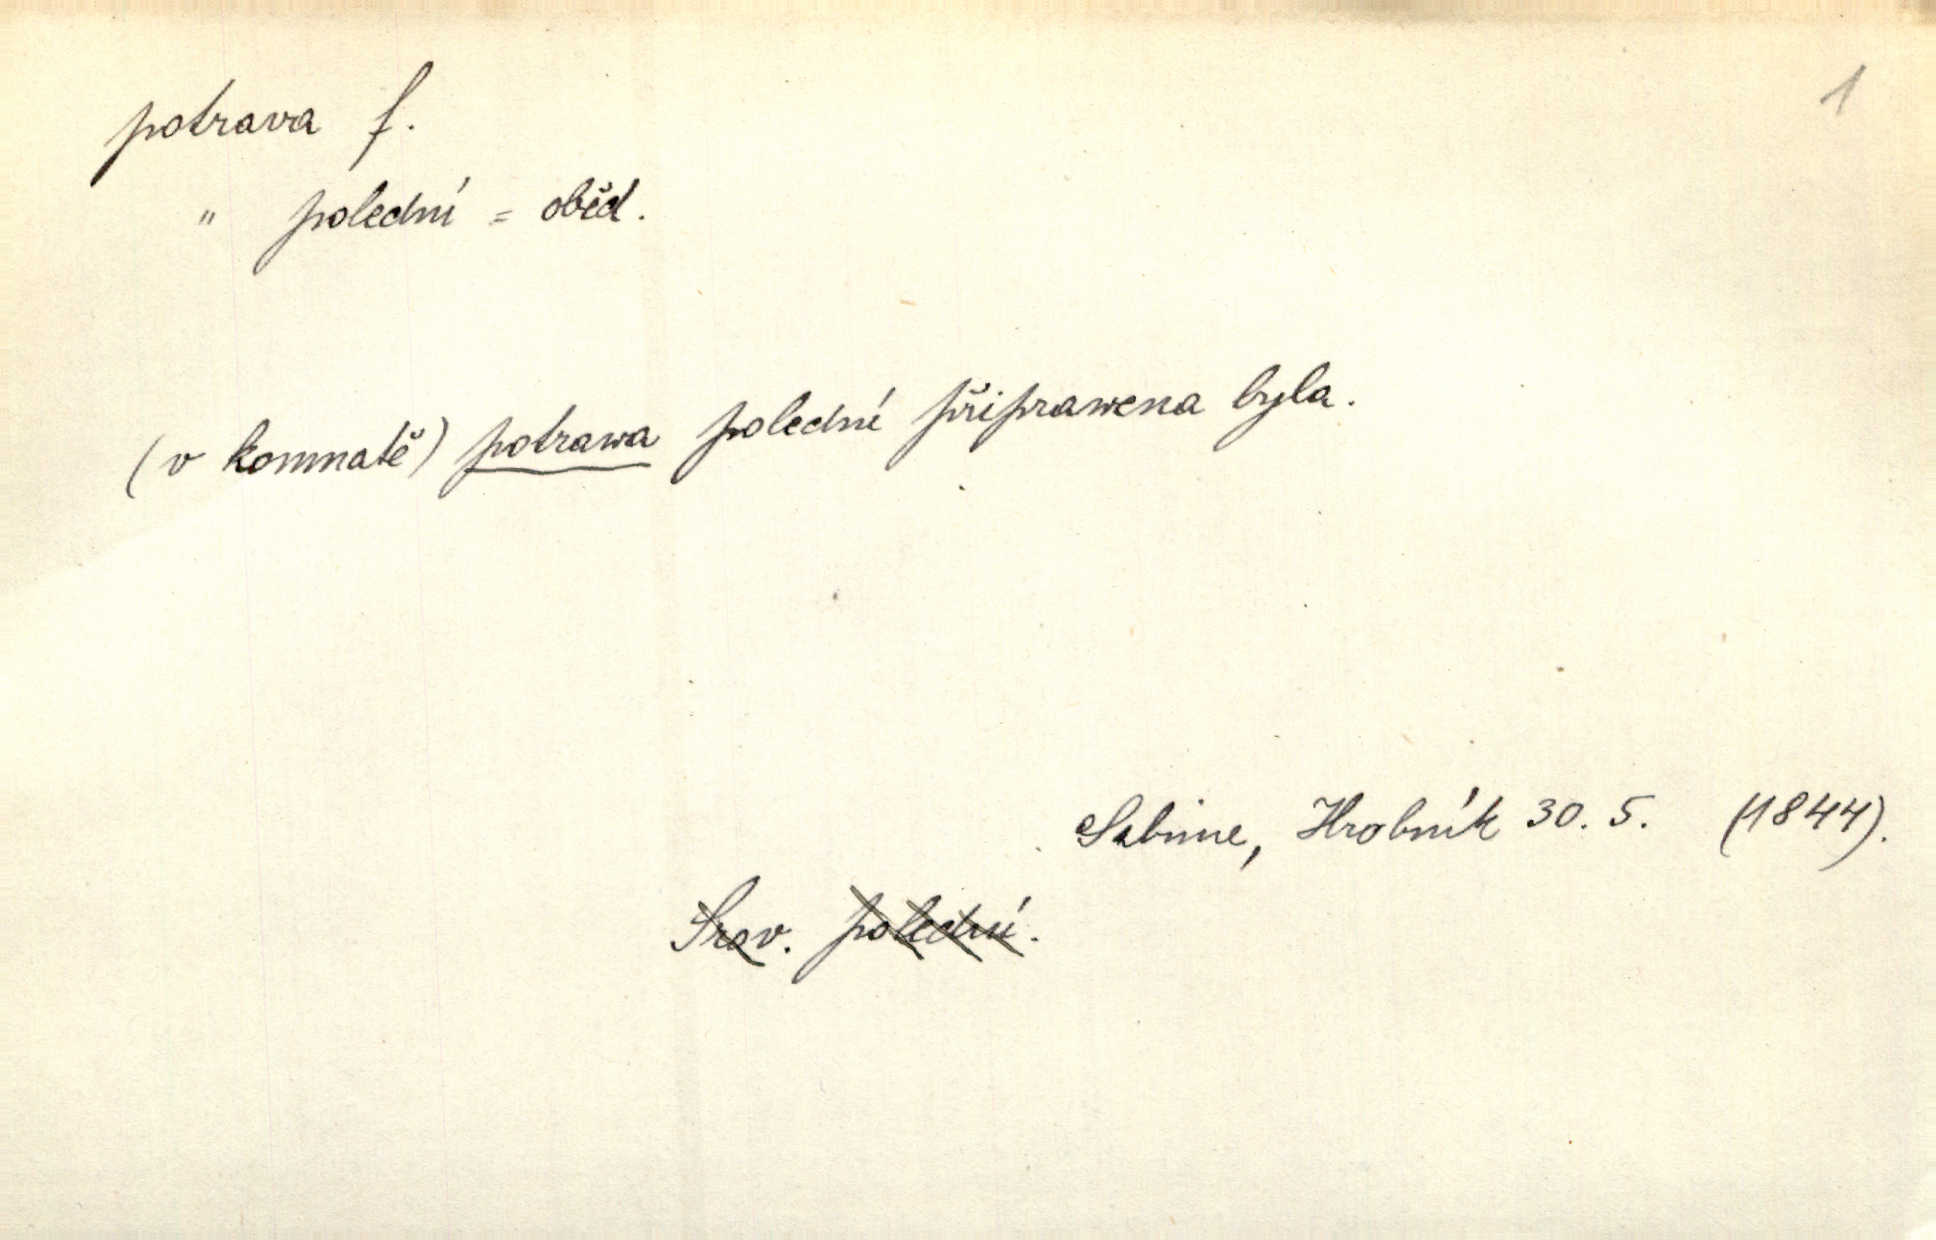 potrava f.
1
" polední = oběd.
(v komnatě) potrawa polední připrawena byla.
Sabine, Hrobník 30. 5. (1844).
Srov. polední.